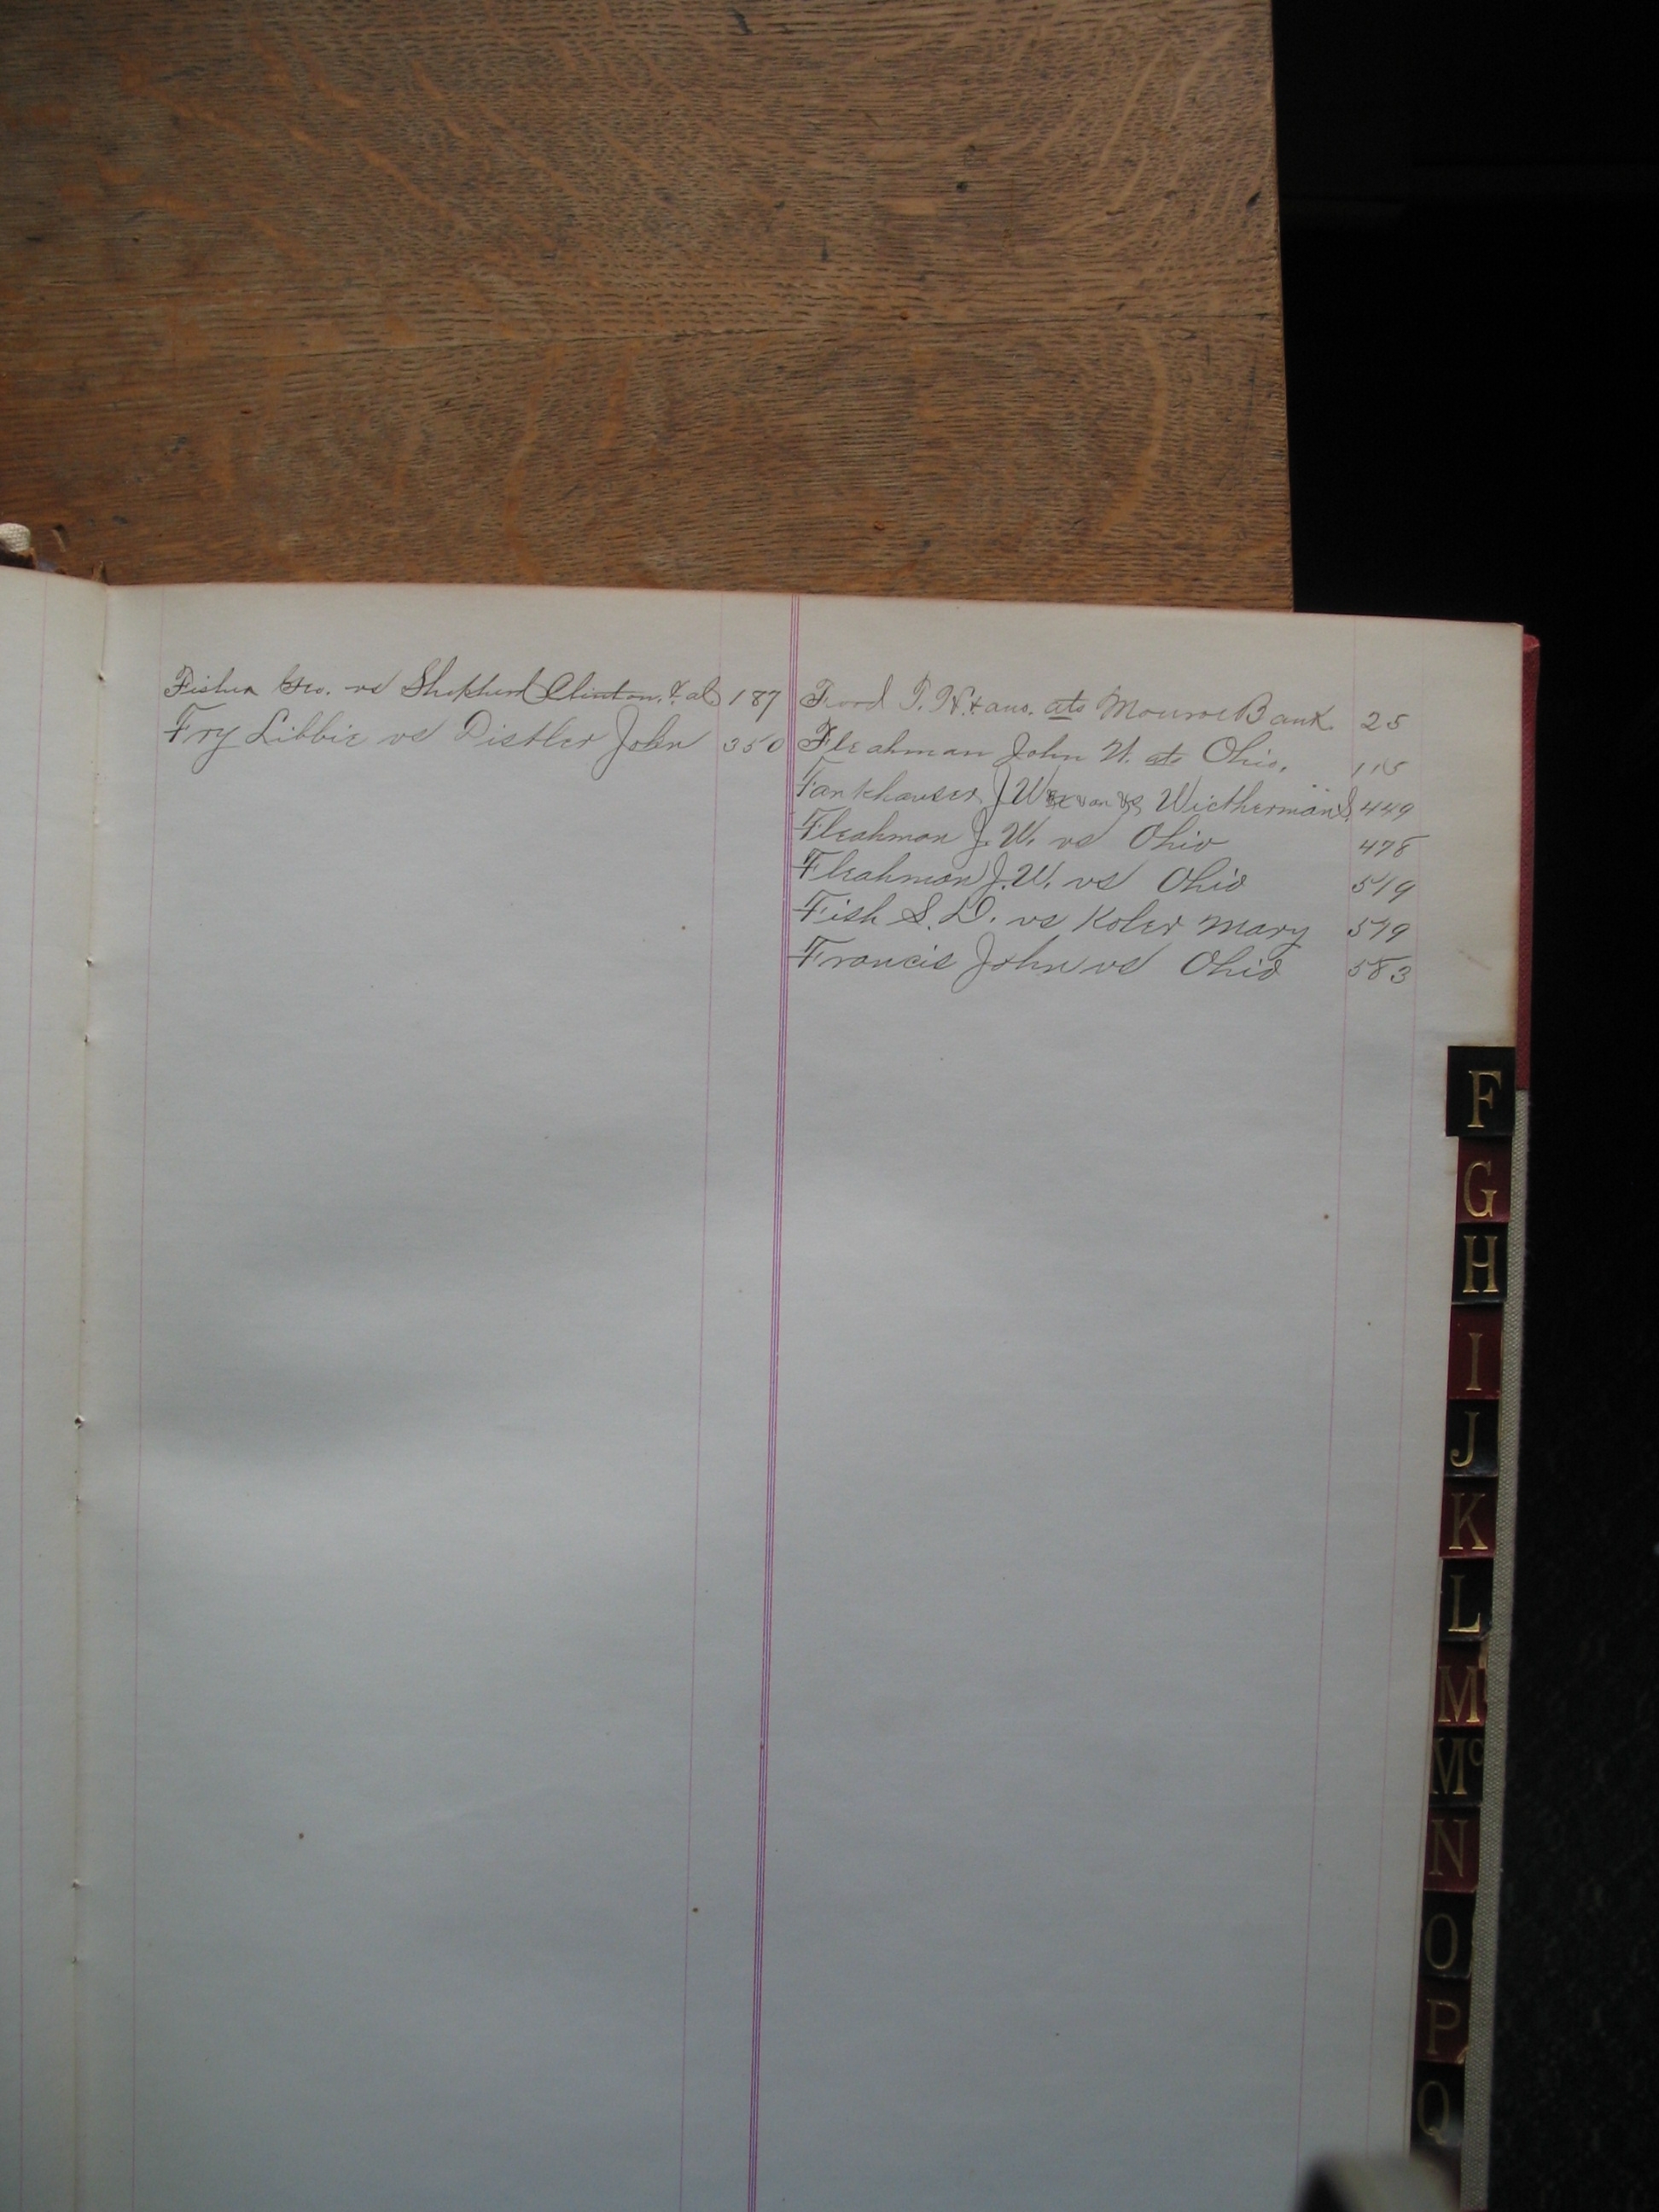 Fisher Geo. vs Shepherd Clinton. & al 187
Fry Libbie vs Distler John 350
Ford T. H. & ano. ats Monroe Bank. 25
Fleahman John W. ats Ohio. 115
Fankhauser J W Ex vs Wictherman 449
Fleahman J. W. vs Ohio 478
Fleahman J. W. vs Ohio 519
Fish S. D. vs Koler Mary 579
Francis John vs Ohio 583
F
G
H
I
J
K
L
M
Mc
N
O
P
Q